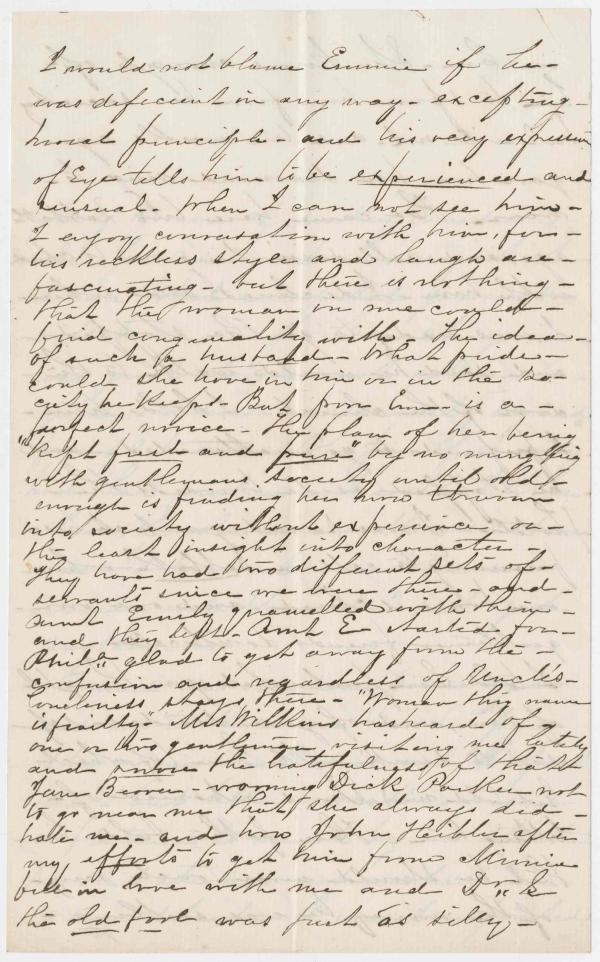 I would not blame Emmie if he -
was deficient in any way - excepting -
moral principle - and his very expression
of Eye tells him to be experienced and
sensual. When I can not see him -
I enjoy conversation with him, for -
his reckless style and laugh are -
fascinating - but there is nothing -
that the woman in me could -
find congeniality with. The idea -
of such a husband - What pride -
could she have in him or in the so-
ciety he keeps - But poor Em - is a -
perfect novice - The plan of her being
"kept fresh and pure" by no mingling
with gentlemens society until old -
enough is finding her now thrown
into society without experience or -
the least insight into character -
They have had two different sets of -
servants since we were there - and -
aunt Emily quarrelled with them -
and they left - Aunt E started for -
Phila glad to get away from the -
confusion and regardless of Uncle's -
loneliness stays there - "Woman thy name
is frailty" Mrs Wilkins has heard of
one or two gentlemen visiting me lately
and the hatefulness of that
Jane Beaver - warning Dick Parker not
to go near me that she always did -
hate me - and how John after
my efforts to get him from Minnie
fell in love with me and Dr. K
the old fool was just as silly -